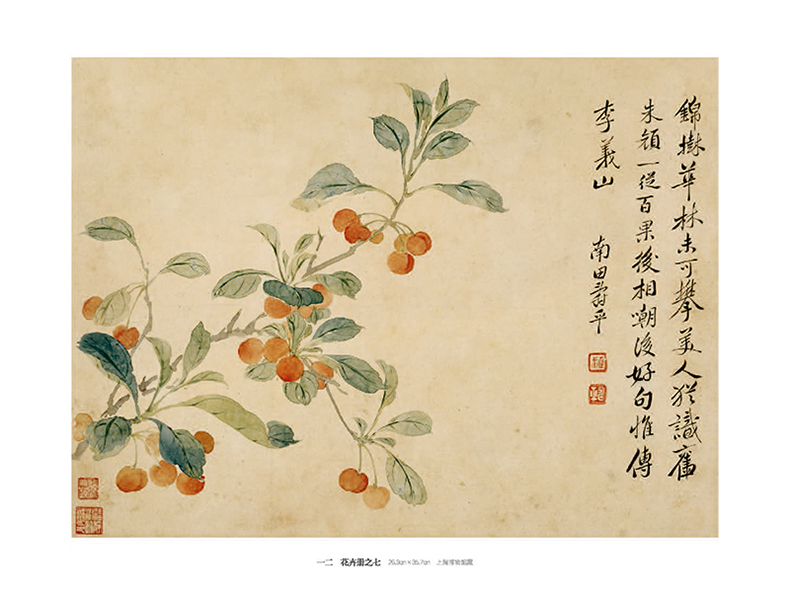 錦樹華林未可攀美人猶識舊
朱顏一從百果後相嘲後好句惟傳
李義山 南田壽平
一二 花卉册之七
上海博物館藏